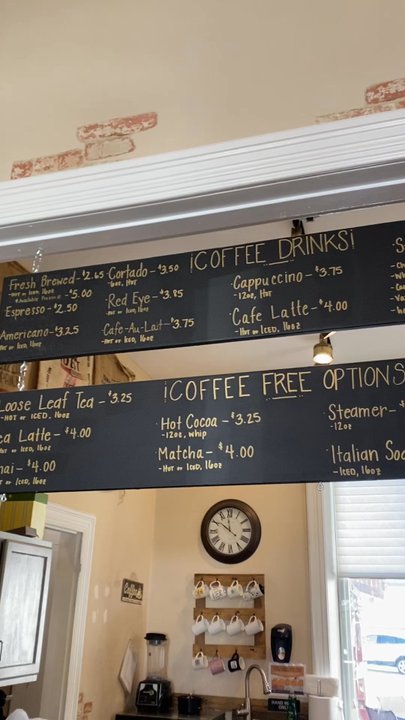 ¡COFFEE DRINKS!
Fresh Brewed - $2.65
-HOT or Iced, 16oz
$5.00
Espresso - $2.50
Americano - $3.25
HOT or Iced, 16oz
Cortado - $3.50
-6oz, HOT
Red Eye - $3.85
-HOT or Iced, 16oz
Cafe-Au-Lait - $3.75
-HOT or Iced, 16oz
Cappuccino - $3.75
-12oz, HOT
Cafe Latte - $4.00
-HOT or ICED, 16oz
¡COFFEE FREE OPTIONS
Loose Leaf Tea - $3.25
-HOT or ICED, 16oz
ea Latte - $4.00
HOT or Iced, 16oz
hai - $4.00
or Iced, 16oz
Hot Cocoa - $3.25
-12oz, whip
Matcha - $4.00
-HOT or Iced, 16oz
Steamer - $
-12oz
Italian Soo
-ICED, 16oz
Coffee